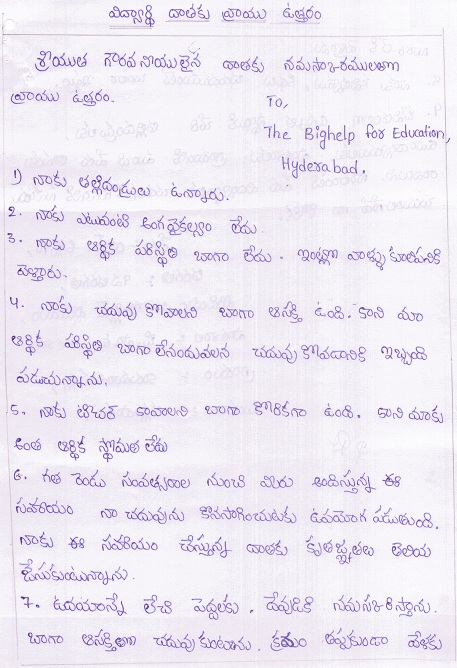 విద్యార్థి దాతకు వ్రాయు ఉత్తరం
శ్రీయుత గౌరవనీయులైన దాతకు నమస్కారములతో
వ్రాయు ఉత్తరం.
To,
The Bighelp for Education,
Hyderabad.
1) నాకు తల్లిదండ్రులు ఉన్నారు.
2. నాకు ఎటువంటి అంగవైకల్యం లేదు.
3. నాకు ఆర్థిక పరిస్థితి బాగా లేదు. ఇంట్లో వాళ్ళు కూలిపనికి
వెళ్తారు.
4. నాకు చదువుకోవాలని బాగా ఆసక్తి ఉంది. కాని మా
ఆర్థిక పరిస్థితి బాగాలేనందువలన చదువుకోవడానికి ఇబ్బంది
పడుచున్నాను.
5. నాకు టీచర్ కావాలని బాగా కోరికగా ఉంది. కాని మాకు
అంత ఆర్థిక స్థోమత లేదు
6. గత రెండు సంవత్సరాల నుంచి మీరు అందిస్తున్న ఈ
సహాయం నా చదువును కొనసాగించుటకు ఉపయోగ పడుతుంది.
నాకు ఈ సహాయం చేస్తున్న దాతకు కృతజ్ఞతలు తెలియ
చేసుకుంటున్నాను.
7. ఉదయాన్నే లేచి పెద్దలకు, దేవుడికి నమస్కరిస్తాను.
బాగా ఆసక్తితో చదువుకుంటాను. క్రమం తప్పకుండా వేళకు